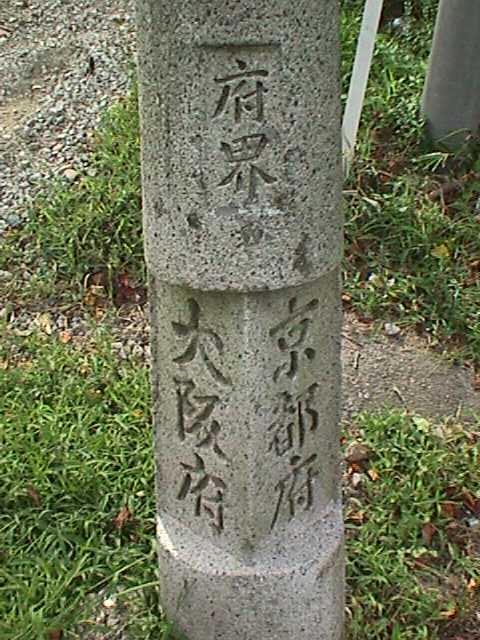 府界
京都府
大阪府